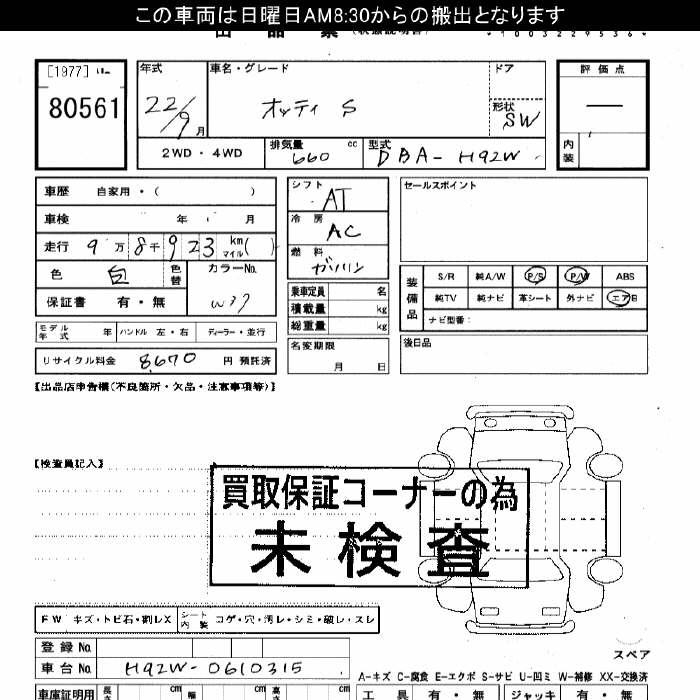 この車両は日曜日AM8:30からの搬出となります
[1977]
80561
年式
22/9月
車名・グレード
オッティ S
ドア
形状
SW
評価点
—
内装
2WD・4WD
排気量
660 cc
型式
DBA-H92W
車歴 自家用・( )
車検 年 月
走行 9万8千923 km マイル( )
色 白 色替
カラーNo.
W37
保証書 有・無
モデル年式 年 ハンドル 左・右 ディーラー・並行
リサイクル料金 8,670 円 預託済
シフト
AT
冷房
AC
燃料
ガソリン
乗車定員 名
積載量 kg
総重量 kg
名変期限
月 日
セールスポイント
装備品
S/R 純A/W P/S P/W ABS
純TV 純ナビ 革シート 外ナビ エアB
ナビ型番:
後日品
【出品店申告欄(不良箇所・欠品・注意事項等)】
【検査員記入】
買取保証コーナーの為
未検査
FW キズ・トビ石・割レX シート内装 コゲ・穴・汚レ・シミ・破レ・スレ
登録No.
車台No. H92W-0610315
スペア
A-キズ C-腐食 E-エクボ S-サビ U-凹ミ W-補修 XX-交換済
車庫証明用 長さ cm 幅 cm 高さ cm
工具 有・無 ジャッキ 有・無